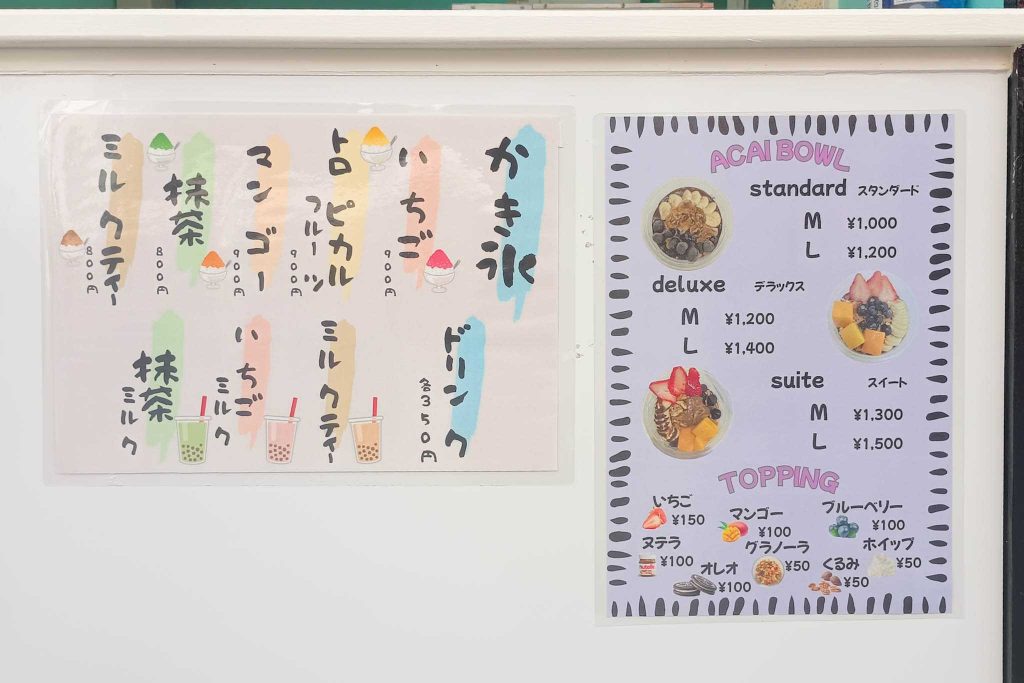 かき氷
いちご
900円
トロピカル
フルーツ
900円
マンゴー
900円
抹茶
800円
ミルクティー
800円
ドリンク
各350円
ミルクティー
いちご
ミルク
抹茶
ミルク
ACAI BOWL
standard スタンダード
M ¥1,000
L ¥1,200
deluxe デラックス
M ¥1,200
L ¥1,400
suite スイート
M ¥1,300
L ¥1,500
TOPPING
いちご ¥150
マンゴー ¥100
ブルーベリー ¥100
ヌテラ ¥100
オレオ ¥100
グラノーラ ¥50
くるみ ¥50
ホイップ ¥50